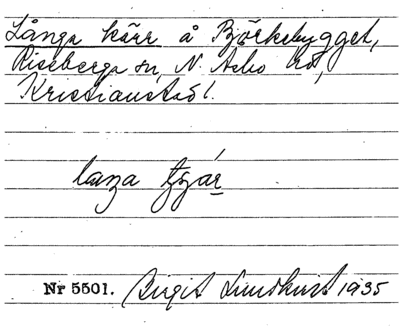 Långa kärr å Björkebygget,
Riseberga sn, N. Asbo hd,
Kristianstad l.
Nr 5501. Birgit Lundkvist 1935